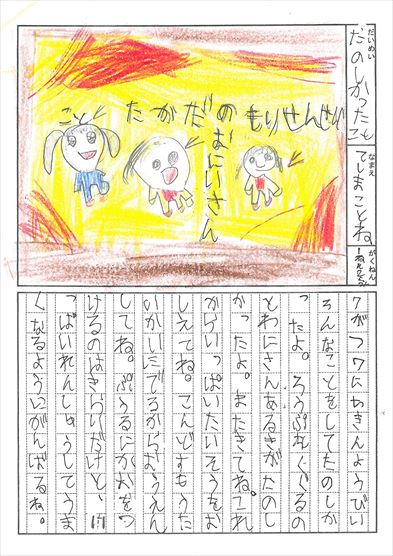 だいめい
たのしかったこと
なまえ
てしまことね
がくねん
もりせんせい
たかだのおにいさん
こと
7がつ7にちきんようびい
ろんなことをしてたのしか
ったよ。ろうぷをくぐるの
とわにさんあるきがたのし
かったよ。またきてね。これ
からいっぱいたいそうをお
しえてね。こんどすもうた
いかいにでるからおうえん
してね。ぷうるにかおをつ
けるのはきらいだけど、い
っぱいれんしゅうしてうま
くなるようにがんばるね。